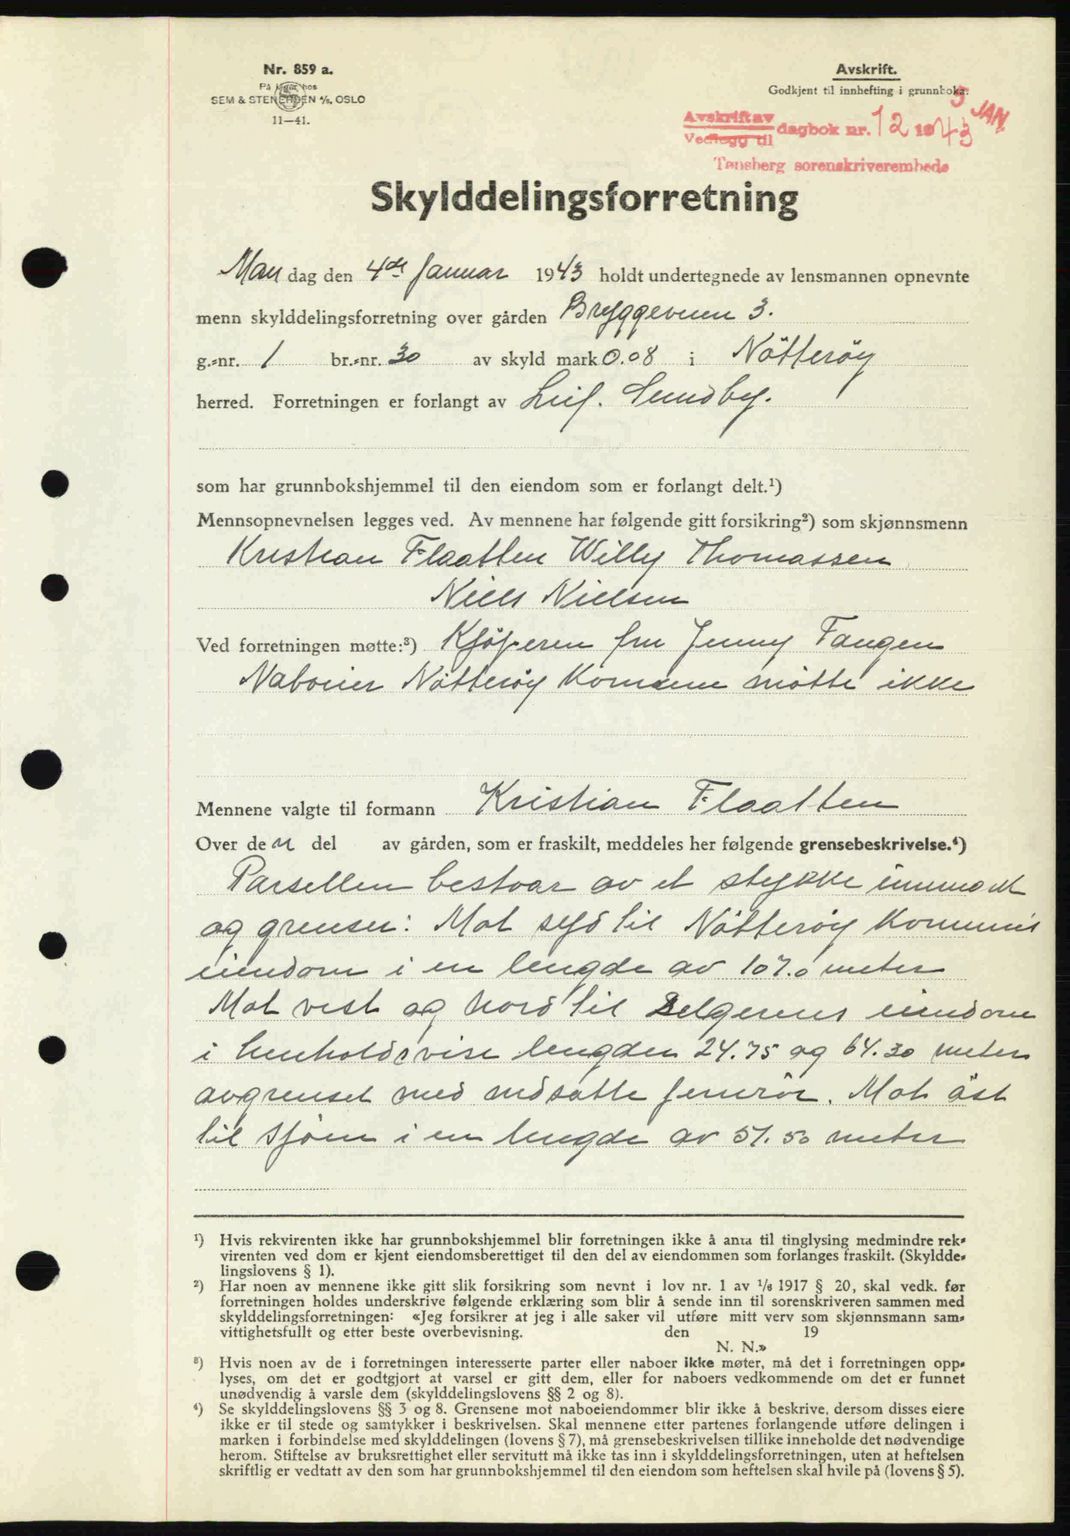 Nr. 859 a.
På lager hos
SEM & STENERSEN A/S. OSLO
11—41.
Avskrift.
Godkjent til innhefting i grunnboka.
5 JAN.
Avskrift av
Vedlegg til
dagbok nr. 12 1943
Tønsberg sorenskriverembede
Skylddelingsforretning
Man dag den 4de Januar 1943 holdt undertegnede av lensmannen opnevnte
menn skylddelingsforretning over gården Bryggeveien 3.
g.-nr. 1 br.-nr. 30 av skyld mark 0.08 i Nötterøy
herred. Forretningen er forlangt av Leif. Sundby.
som har grunnbokshjemmel til den eiendom som er forlangt delt.¹)
Mennsopnevnelsen legges ved. Av mennene har følgende gitt forsikring²) som skjønnsmenn
Kristian Flaatten Willy Thomassen
Niels Nielsen
Ved forretningen møtte:³) Kjöperen fru Jenny Tangen
Naboeier Nötteröy Komune mötte ikke
Mennene valgte til formann Kristian Flaatten
Over den del av gården, som er fraskilt, meddeles her følgende grensebeskrivelse.⁴)
Parsellen bestaar av et stykke innmark
og grenser: Mot syd til Nötteröy Komunes
eiendom i en lengde av 107.0 meter
Mot vest og nord til Selgerens eiendom
i henholdsvise lengder 24.75 og 64.30 meter
avgrenset med nedsatte jernrör. Mot öst
til sjöen i en lengde av 51.50 meter
¹) Hvis rekvirenten ikke har grunnbokshjemmel blir forretningen ikke å anta til tinglysing medmindre rek-
virenten ved dom er kjent eiendomsberettiget til den del av eiendommen som forlanges fraskilt. (Skyldde-
lingslovens § 1).
²) Har noen av mennene ikke gitt slik forsikring som nevnt i lov nr. 1 av ¹/₆ 1917 § 20, skal vedk. før
forretningen holdes underskrive følgende erklæring som blir å sende inn til sorenskriveren sammen med
skylddelingsforretningen: «Jeg forsikrer at jeg i alle saker vil utføre mitt verv som skjønnsmann sam-
vittighetsfullt og etter beste overbevisning. den 19
N. N.»
³) Hvis noen av de i forretningen interesserte parter eller naboer ikke møter, må det i forretningen opp-
lyses, om det er godtgjort at varsel er gitt dem, eller for naboers vedkommende om det er funnet
unødvendig å varsle dem (skylddelingslovens §§ 2 og 8).
⁴) Se skylddelingslovens §§ 3 og 8. Grensene mot naboeiendommer blir ikke å beskrive, dersom disses eiere
ikke er til stede og samtykker i beskrivelsen. Skal mennene etter partenes forlangende utføre delingen i
marken i forbindelse med skylddelingen (lovens § 7), må grensebeskrivelsen tillike inneholde det nødvendige
herom. Stiftelse av bruksrettighet eller servitutt må ikke tas inn i skylddelingsforretningen, uten at heftelsen
skriftlig er vedtatt av den som har grunnbokshjemmel til den eiendom som heftelsen skal hvile på (lovens § 5).